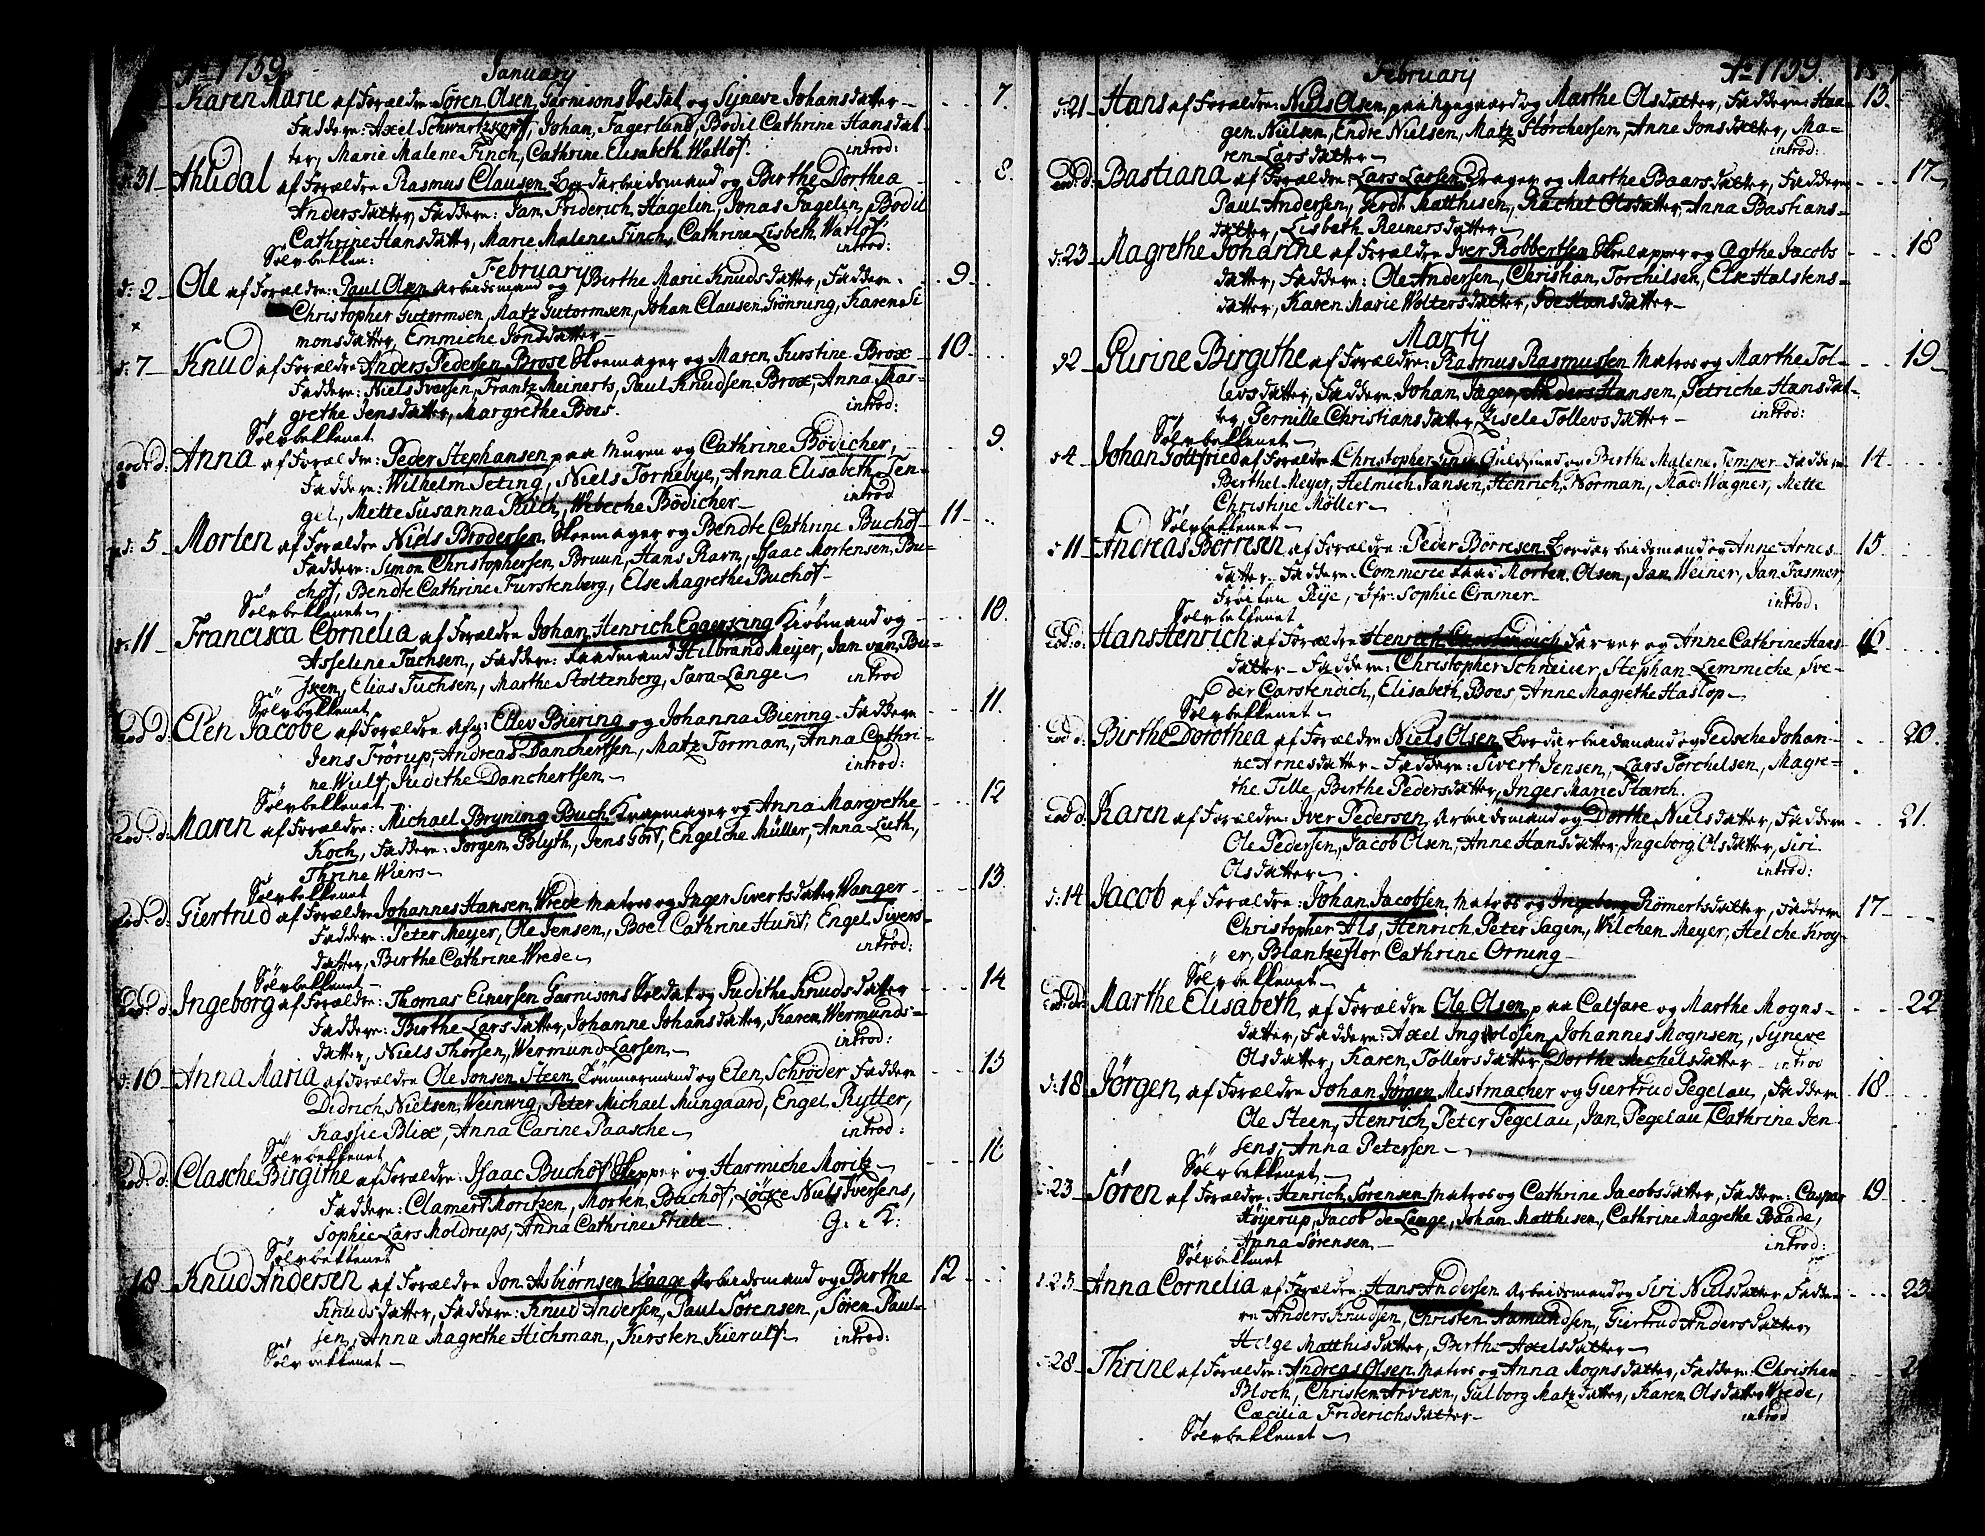 Ao 1759.
January
Karen Marie af Forældre Søren Olsen, Garnisons Soldat og Syneve Johansdatter 7.
Faddere: Axel Schwartzkopf, Johan Fagerland, Bodil Cathrine Hansdat-
ter, Marie Malene Finch, Cathrine Elisabeth Watlof. introd:
d: 31 Ahlidal af Forældre Rasmus Clausen Bordarbeidsmand og Birthe Dorthea 8.
Andersdatter, Faddere: Jan Friderich Hagelin, Jonas Fagelin, Bodil
Cathrine Hansdatter, Marie Malene Finch, Cathrine Lisbeth Watlof
Sølvbekken: introd:
February
d: 2 Ole af Forældre: Paul Olsen Arbeidsmand og Birthe Marie Knudsdatter, Faddere: 9
Christopher Gutormsen, Matz Gutormsen, Johan Clausen Grønning, Karen Si
monsdatter, Emmiche Jonsdatter
d: 7 Knud af Forældre Anders Pedersen Brose Skoemager og Maren Kirstine Brose 10
Faddere: Niels Iversen, Frantz Meinerts, Paul Knudsen Brose, Anna Mar-
grethe Jensdatter, Margrethe Boes. introd:
Sølvbekkenet
eod: d: Anna af Forældre: Peder Stephansen paa Muren og Cathrine Bödicher, 9.
Faddere: Wilhelm Teting, Niels Tornebye, Anna Elisabeth Ten-
gel, Mette Susanna Rüth, Webeche Bödicher introd
d: 5 Morten af Forældre Niels Brodersen Skoemager og Bendte Cathrine Buchof 11
Faddere: Simon Christophersen, Bruun, Hans Ravn, Isaac Mortensen Bu-
chof, Bendte Cathrine Furstenberg, Else Magrethe Buchof
Sølvbekkenet
d: 11 Francisca Cornelia af Forældre Johan Henrich Eggerking Kiøbmand og 10.
Asseline Fuchsen, Faddere: Raadmand Hilbrand Meyer, Jan van Bu-
sken, Elias Fuchsen, Marthe Stoltenberg, Sara Lange introd
Sølvbekkenet
Eod d: Elen Jacobe af Forældre Afg: Ellev Biering og Johanna Biering Faddere 11.
Jens Frørup, Andreas Danchertsen, Matz Forman, Anna Cathri-
ne Wulf, Judithe Danchertsen introd:
Sølvbekkenet
Eod. d: Maren af Forældre: Michael Bryning Buch Knapmager og Anna Margrethe 12
Koch, Faddere: Jørgen Blyth, Jens Giøt, Engelche Müller, Anna Luth,
Thrine Wiers
Sølvbekkenet
Eod. d: Giertrud af Forældre Johannes Hansen Wrede Matros og Inger Sivertsdatter Wanger 13
Faddere: Peter Meyer, Ole Jensen, Boel Cathrine Hunt, Engel Sivers-
datter, Birthe Cathrine Wrede introd:
Sølvbekkenet
Eod. d: Ingeborg af Forældre: Thomas Einersen Garnisons Soldat og Judithe Knudsdatter 14
Faddere: Birthe Larsdatter, Johanne Johansdatter, Karen Wermunds-
datter, Niels Thorsen, Wermund Larsen introd:
d: 16 Anna Maria af Forældre Ole Jonsen Steen Tömmermand og Elen Schröder Faddere 15
Didrich Nielsen Weinwig, Peter Michael Mungaard, Engel Rytter,
Kassie Blix, Anna Carine Paasche introd:
Sølvbekkenet
Eod. d: Clasche Birgithe af Forældre: Isaac Buchof Skipper og Harmiche Moritz 16
Faddere: Clamert Moritzen, Morten Buchof, Løcke Niels Iversens,
Sophie Lars Moldrups, Anna Cathrine Stiele G. K:
Sølvbekkenet
18 Knud Andersen af Forældre Jon Asbiørnsen Waage Arbeidsmand og Birthe 12
Knudsdatter, Faddere: Knud Andersen, Paul Sørensen, Søren Paul-
sen, Anna Magrethe Hichman, Kirsten Kierulf introd:
Sølvbekkenet
February Ao 1759.
d: 21 Hans af Forældre: Niels Olsen paa Nygaard og Marthe Olsdatter, Faddere: Han- 13.
gen Nielsen, Endre Nielsen, Matz Størchersen, Anne Jonsdatter, Ma-
ren Larsdatter introd:
eod: d: Bastiana af Forældre: Lars Larsen Drager og Marthe Baarsdatter, Faddere 17
Paul Andersen, Gerdt Matthisen, Rachel Olsdatter, Anna Bastians-
datter, Lisbeth Reinersdatter
d: 23 Magrethe Johanne af Forældre Iver Robbertsen Skoelapper og Agthe Jacobs 18
datter, Faddere: Ole Andersen, Christian Torchilsen, Else Halstens-
datter, Karen Marie Woltersdatter, Ide Hansdatter
Martij
d 2 Pirine Birgithe af Forældre: Rasmus Rasmussen Matros og Marthe Tol- 19
levsdatter, Faddere Johan Jager, Anders Hansen, Petriche Hansdat-
ter, Pernille Christiansdatter, Zisele Tollevsdatter introd:
Sølvbekkenet
d 4 Johan Gottfried af Forældre Christopher Linde Guldsmed og Birthe Malene Temper Faddere 14
Berthel Meyer, Helmich Jansen, Henrich Norman, Mad: Wagner, Mette
Christine Möller
Sølvbekkenet
d 11 Andreas Börresen af Forældre: Peder Börresen Bordarbeidsmand og Anne Arnes 15
datter Faddere: Commercie Raad Morten Olsen, Jan Weiner, Jan Fasmer,
Frøiken Rye, Jfr: Sophie Cramer introd:
Sølvbekkenet
Eod: d: Hans Henrich af Forældre Henrich Carstendich Farver og Anne Cathrine Hans 16
datter Faddere: Christopher Schneiier, Stephan Lemmiche Sve-
der Carstendich, Elisabeth Boes, Anne Magrethe Haslop
Sølvbekkenet
Eod d: Birthe Dorothea af Forældre Niels Olsen Bordarbeidsmand og Jedsche Johan- 20.
ne Arnesdatter Faddere: Sivert Jensen, Lars Torchilsen, Magre-
the Tille, Birthe Pedersdatter, Inger Marie Starch.
Eod d. Karen af Forældre: Iver Pedersen, Arbeidsmand og Dorthe Nielsdatter, Faddere 21.
Ole Pedersen, Jacob Olsen, Anne Hansdatter, Ingeborg Olsdatter, Siri
Olsdatter introd:
d: 14 Jacob af Forældre: Johan Jacobsen Matros og Ingeborg Römertsdatter, Faddere 17
Christopher Als, Henrich Peter Sagen, Wilchen Meyer, Helche Kroy-
er, Blantzeflor Cathrine Orning
Sølvbekkenet
Eod: d: Marthe Elisabeth, af Forældre Ole Olsen paa Calfare og Marthe Mogns- 22
datter, Faddere: Axel Ingwoldsen, Johannes Mognsen, Syneve
Olsdatter, Karen Tollersdatter, Dorthe Mechelsdatter introd
d: 18 Jørgen, af Forældre Johan Jørgen Mestmacher og Giertrud Pegelau, Faddere 18
Ole Steen, Henrich Peter Pegelau, Jan Pegelau, Cathrine Jen
sens, Anna Petersen
Sølvbekkenet
23 Søren af Forældre: Henrich Sørensen Matros og Cathrine Jacobsdatter, Faddere: Caspar 19
Høyerup, Jacob de Lange, Johan Matthisen, Cathrine Magrethe Baade,
Anna Sørensen introd:
Sølvbekkenet
d: 25 Anna Cornelia af Forældre: Hans Andersen Arbeidsmand og Siri Nielsdatter Fadde- 23.
re Anders Knudsen, Christen Aamundsen, Giertrud Andersdatter,
Helge Matthisdatter, Birthe Axelsdatter
28 Thrine af Forældre: Andreas Olsen Matros og Anna Mognsdatter, Faddere: Christian
Bloch, Christen Arvesen, Gulborg Matzdatter, Karen Olsdatter Wrede,
Cæcilia Friderichsdatter introd
Sølvbekkenet